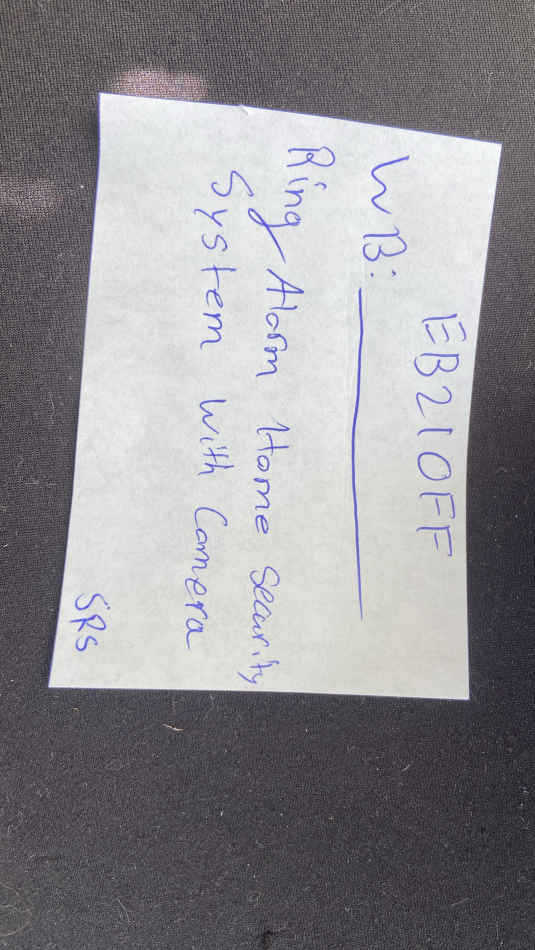 EB210FF
WB:
Ring Alarm Home Security
System With Camera
SRS